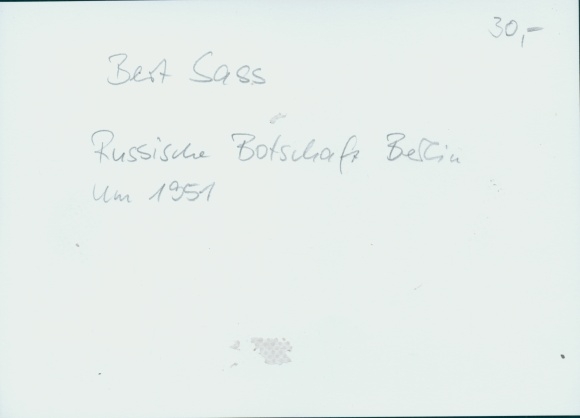 30,-
Bert Sass
Russische Botschaft Berlin
um 1951